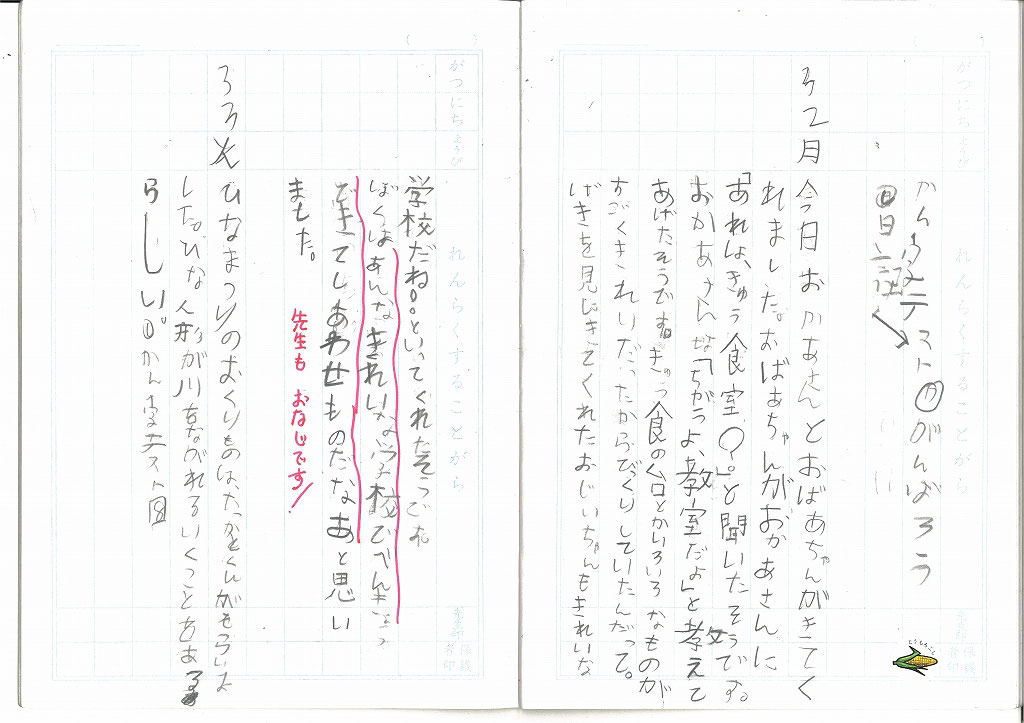 がつにち ようび
れんらくすることがら
かん字テスト がんばろう
日記
3 2 月 今日おかあさんとおばあちゃんがきてく
れました。おばあちゃんがおかあさんに
「あれは、きゅう食室?。」と聞いたそうです。
おかあさんは「ちがうよ、教室だよ」と教えて
あげたそうです。きゅう食の台とかいろいろなものが
すごくきれいだったからびっくりしていたんだって。
げきを見にきてくれたおじいちゃんもきれいな
がつにち ようび
れんらくすることがら
学校だね。。といってくれたそうです
ぼくはあんなきれいな学校でべんきょう
できてしあわせものだなあと思い
ました。
先生も おなじです!
3 3 火 ひなまつりのおくりものは、たかくんがもらいま
した。ひな人形が川をながれるいくことあある
らしい。かん字テスト